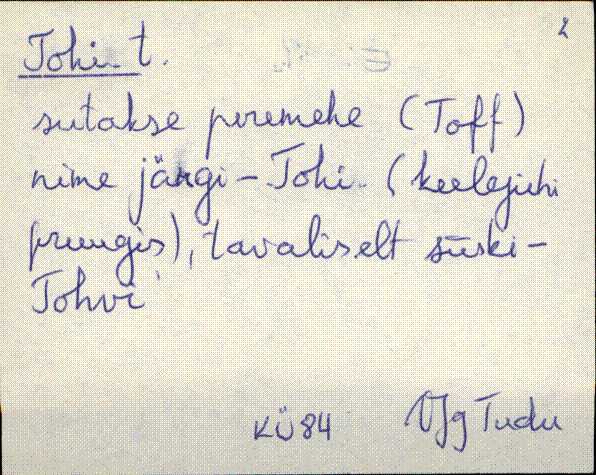 2
Tohi t.
sutakse peremehe (Toff)
nime järgi - Tohi. (keelejuhi
pruugis), tavaliselt siiski -
Tohvi
KÜ 84 VJg Tudu